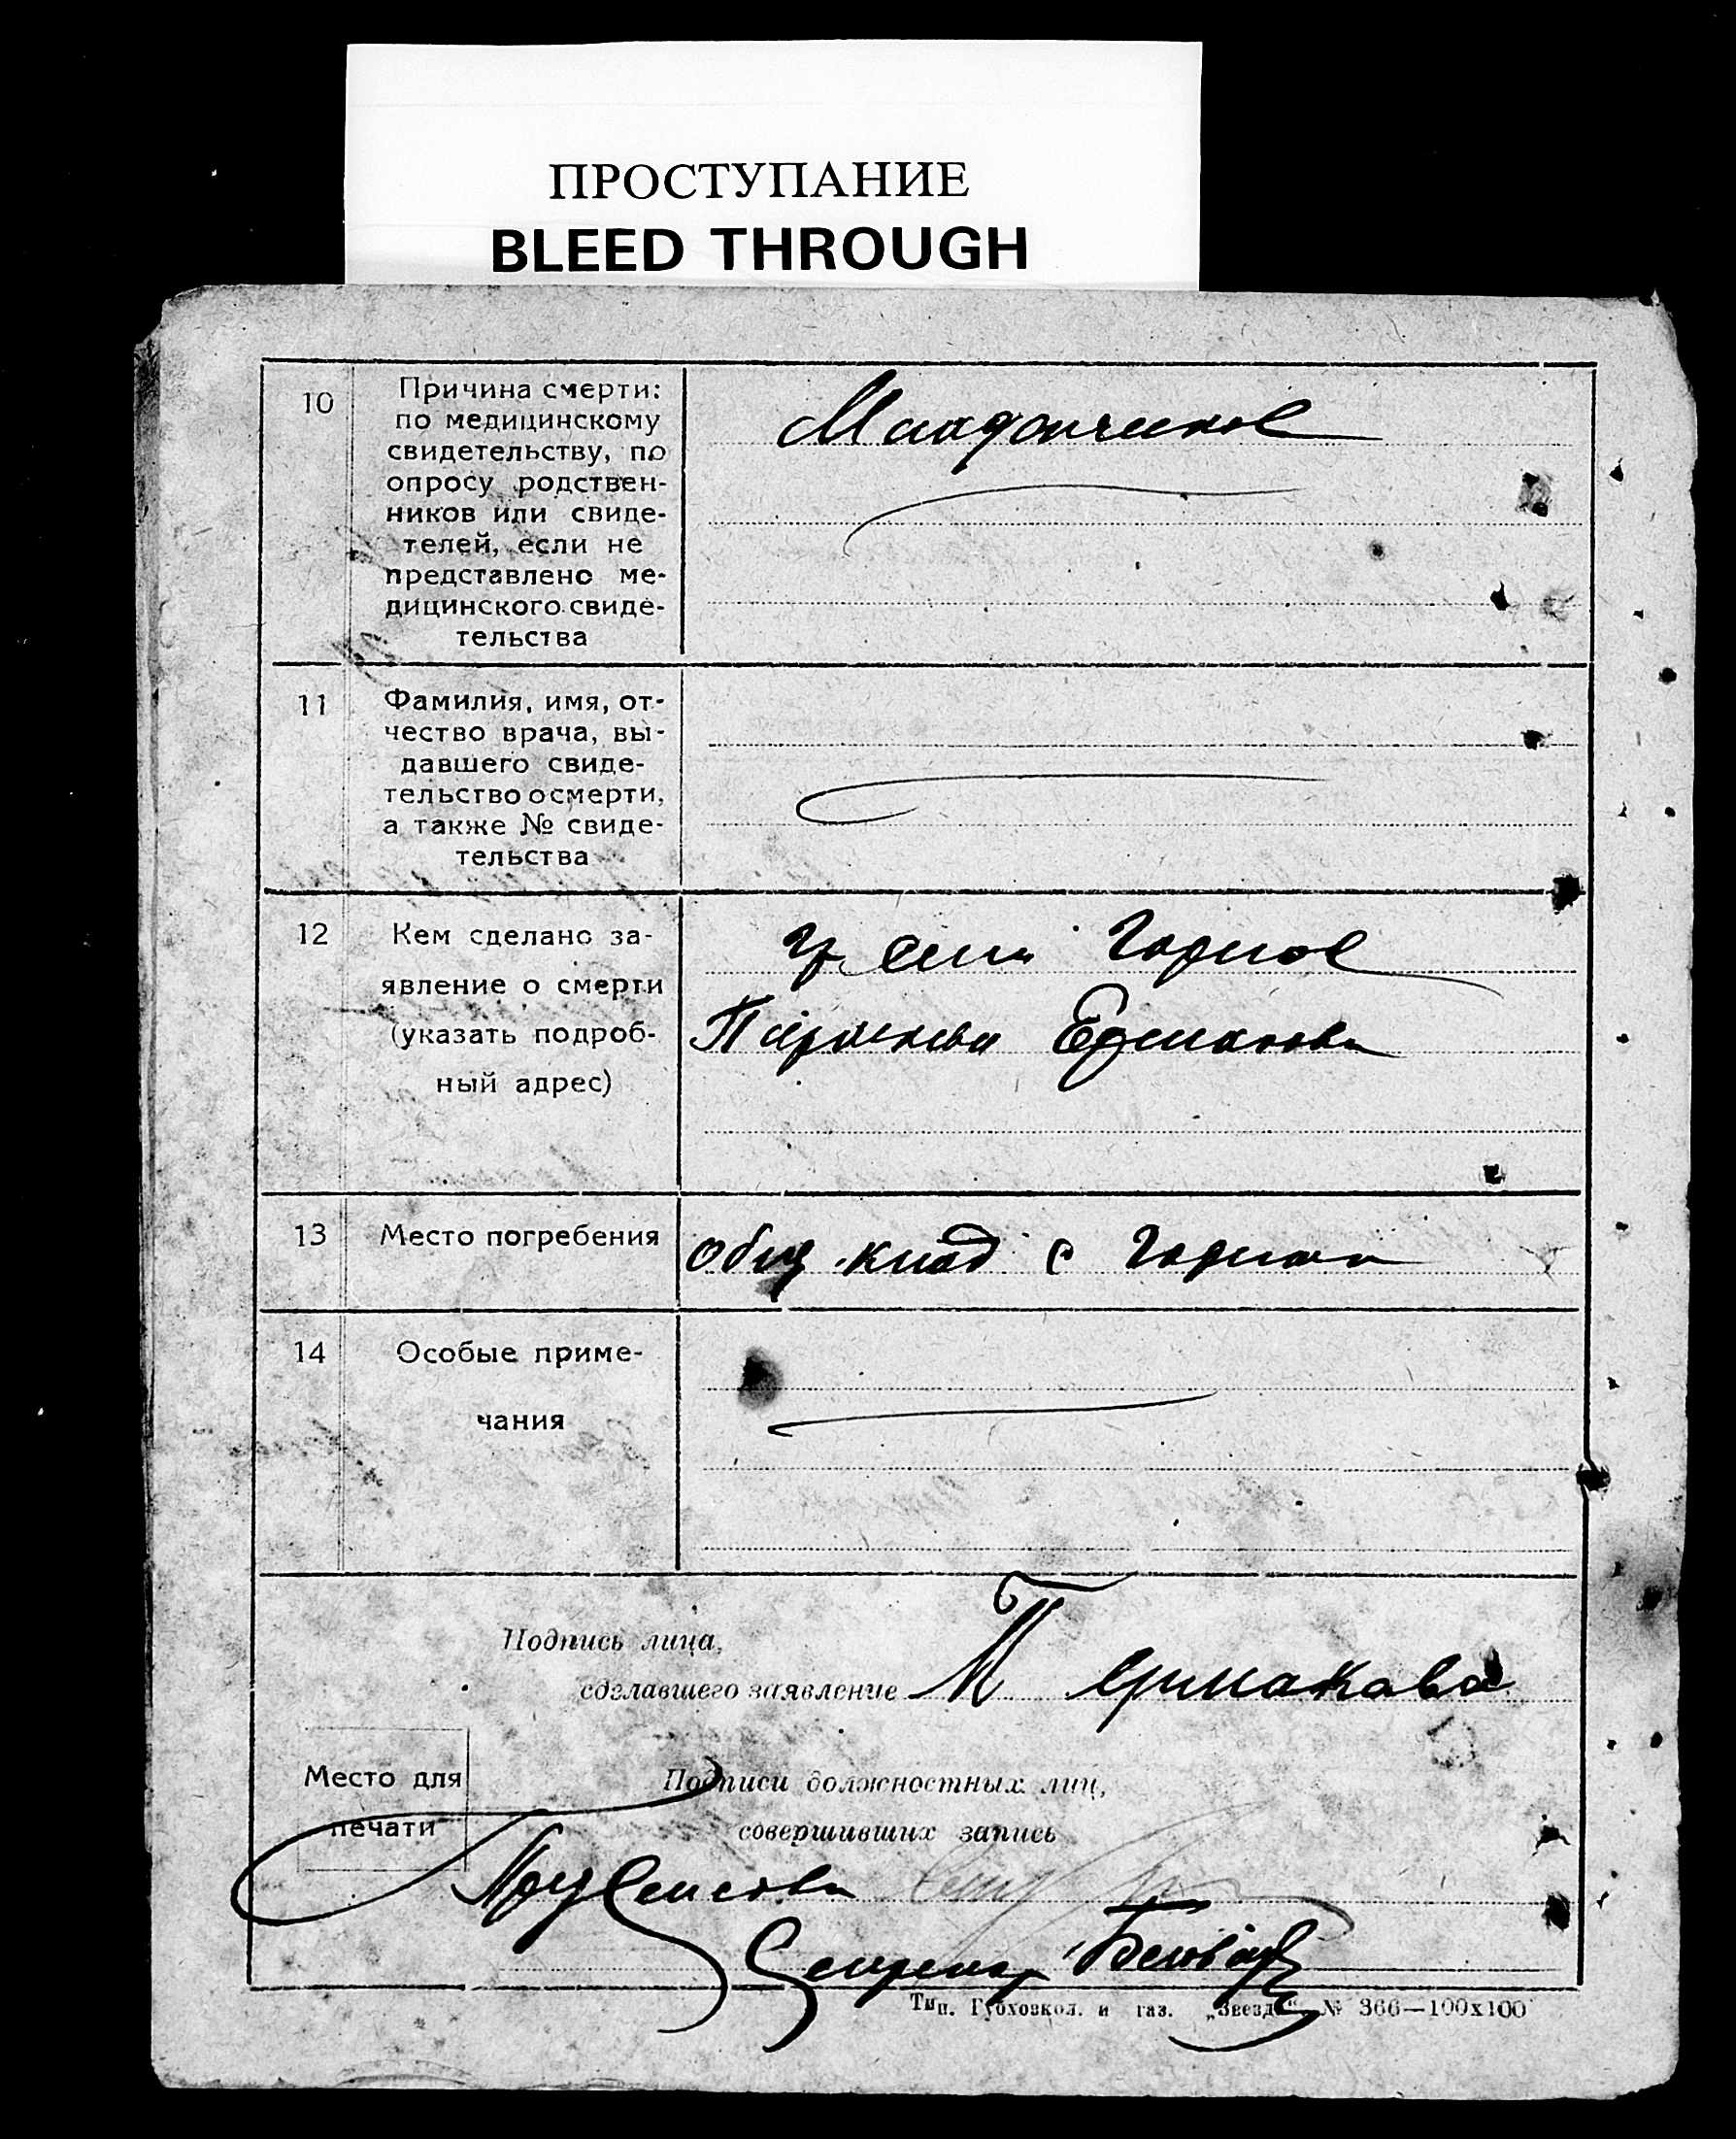 ПРОСТУПАНИЕ
BLEED THROUGH
10
Причина смерти:
по медицинскому
свидетельству, по
опросу родствен-
ников или свиде-
телей, если не
представлено ме-
дицинского свиде-
тельства
11
Фамилия, имя, от-
чество врача, вы-
давшего свиде-
тельство о смерти,
а также № свиде-
тельства
12
Кем сделано за-
явление о смерти
(указать подроб-
ный адрес)
гр
13
Место погребения
общ клад с
14
Особые приме-
чания
Подпись лица,
сделавшего заявление П
Место для
печати
Подписи должностных лиц,
совершивших запись
Секретар
Тип. Губхозкол. и газ. „Звезда“ № 366—100х100